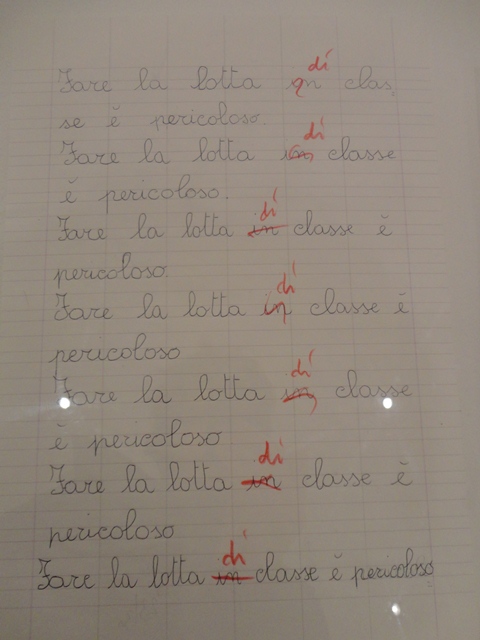 di
Fare la lotta in clas_
se è pericoloso.
di
Fare la lotta in classe
è pericoloso.
di
Fare la lotta in classe è
pericoloso.
di
Fare la lotta in classe è
pericoloso
di
Fare la lotta in classe
è pericoloso
di
Fare la lotta in classe è
pericoloso
di
Fare la lotta in classe è pericoloso